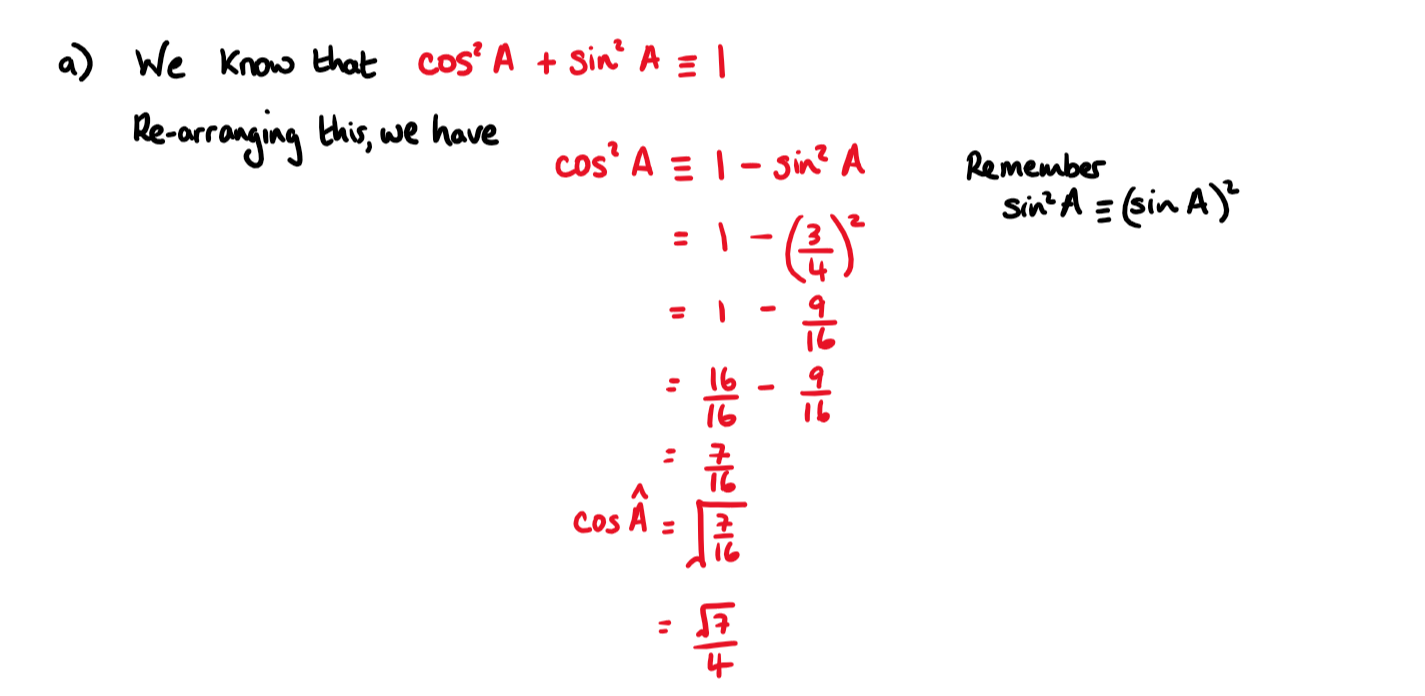 a) We know that cos² A + sin² A ≡ 1
Re-arranging this, we have
cos² A ≡ 1 - sin² A
Remember
sin² A ≡ (sin A)²
= 1 - (3/4)²
= 1 - 9/16
= 16/16 - 9/16
= 7/16
cos Â̂ = √(7/16)
= √7/4